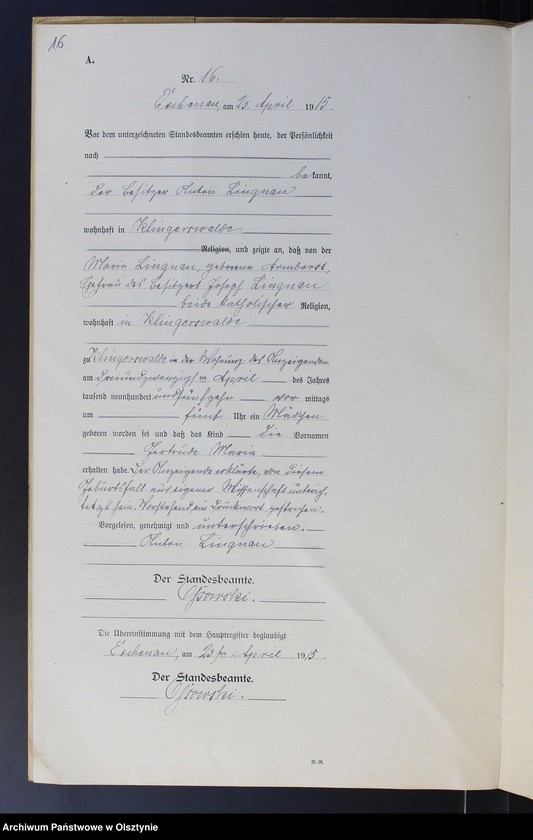 16
A.
Nr. 16.
Eschenau, am 23. April 1915.
Vor dem unterzeichneten Standesbeamten erschien heute, der Persönlichkeit
nach
bekannt,
der Besitzer Anton Lingnau
wohnhaft in Klingerswalde
Religion, und zeigte an, daß von der
Maria Lingnau, geborene Armborst,
Ehefrau des Besitzers Joseph Lingnau
beide katholischer Religion,
wohnhaft in Klingerswalde
zu Klingerswalde in der Wohnung des Anzeigenden
am dreiundzwanzigsten April des Jahres
tausend neunhundert undfünfzehn vor mittags
um fünf Uhr ein Mädchen
geboren worden sei und daß das Kind die Vornamen
Gertrude Maria
erhalten habe. Der Anzeigende erklärte, von diesem
Geburtsfall aus eigener Wissenschaft unterrich-
tet zu sein. Vorstehend ein Druckwort gestrichen.
Vorgelesen, genehmigt und unterschrieben.
Anton Lingnau
Der Standesbeamte.
Ossowski.
Die Übereinstimmung mit dem Hauptregister beglaubigt
Eschenau, am 23ten April 1915.
Der Standesbeamte.
Ossowski.
Archiwum Państwowe w Olsztynie